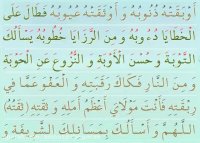 أَوْبَقَتْهُ ذُنُوبُهُ وَ أَوْثَقَتْهُ عُيُوبُهُ فَطَالَ عَلَى
الْخَطَايَا دُءُوبُهُ وَ مِنَ الرَّزَايَا خُطُوبُهُ يَسْأَلُكَ
التَّوْبَةَ وَ حُسْنَ الْأَوْبَةِ وَ النُّزُوعَ عَنِ الْحَوْبَةِ
وَ مِنَ النَّارِ فَكَاكَ رَقَبَتِهِ وَ الْعَفْوَ عَمَّا فِي
رِبْقَتِهِ فَأَنْتَ مَوْلَايَ أَعْظَمُ أَمَلِهِ وَ ثِقَتِهِ (ثِقَتُهُ)
اللَّهُمَّ وَ أَسْأَلُكَ بِمَسَائِلِكَ الشَّرِيفَةِ وَ